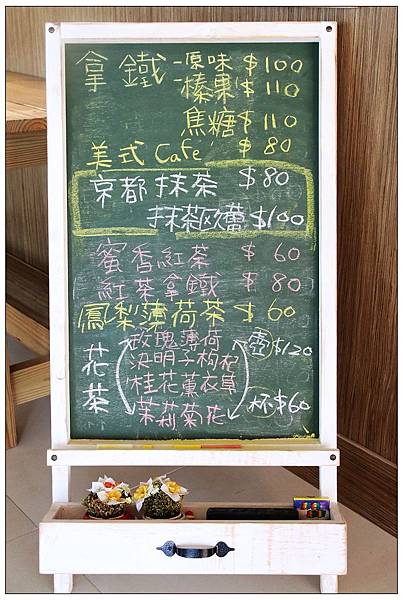 拿鐵 原味 $100
榛果 $110
焦糖 $110
美式 Cafe' $80
京都抹茶 $80
抹茶歐蕾 $100
蜜香紅茶 $60
紅茶拿鐵 $80
鳳梨薄荷茶 $60
花茶
玫瑰薄荷
決明子枸杞
桂花薰衣草
茉莉菊花
壺$120
杯$60